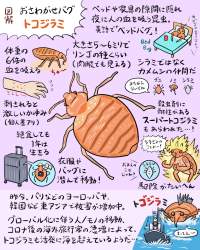 図解
おさわがせバグ
トコジラミ
ベッドや家具の隙間に隠れ
夜に人の血を吸う昆虫。
英語でベッドバグ!
Bed
Bug
体重の
6倍の
血を吸える
大きさ5〜6ミリで
リンゴの種くらい
(肉眼でも見える)
シラミではなく
カメムシの仲間だ
刺されると
激しいかゆみ
(個人差あり)
殺虫剤に
耐性がある
スーパートコジラミ
もあらわれた…!
絶食しても
1年は
生きる
衣服や
バッグに
潜んで移動!
駆除がたいへん
昨今、パリなどのヨーロッパや、
韓国など東アジアで被害が増加中。
グローバル化に伴う人/モノの移動、
コロナ後の海外旅行客の急増によって、
トコジラミも活発に海を越えているようだ…
トゴジラミ